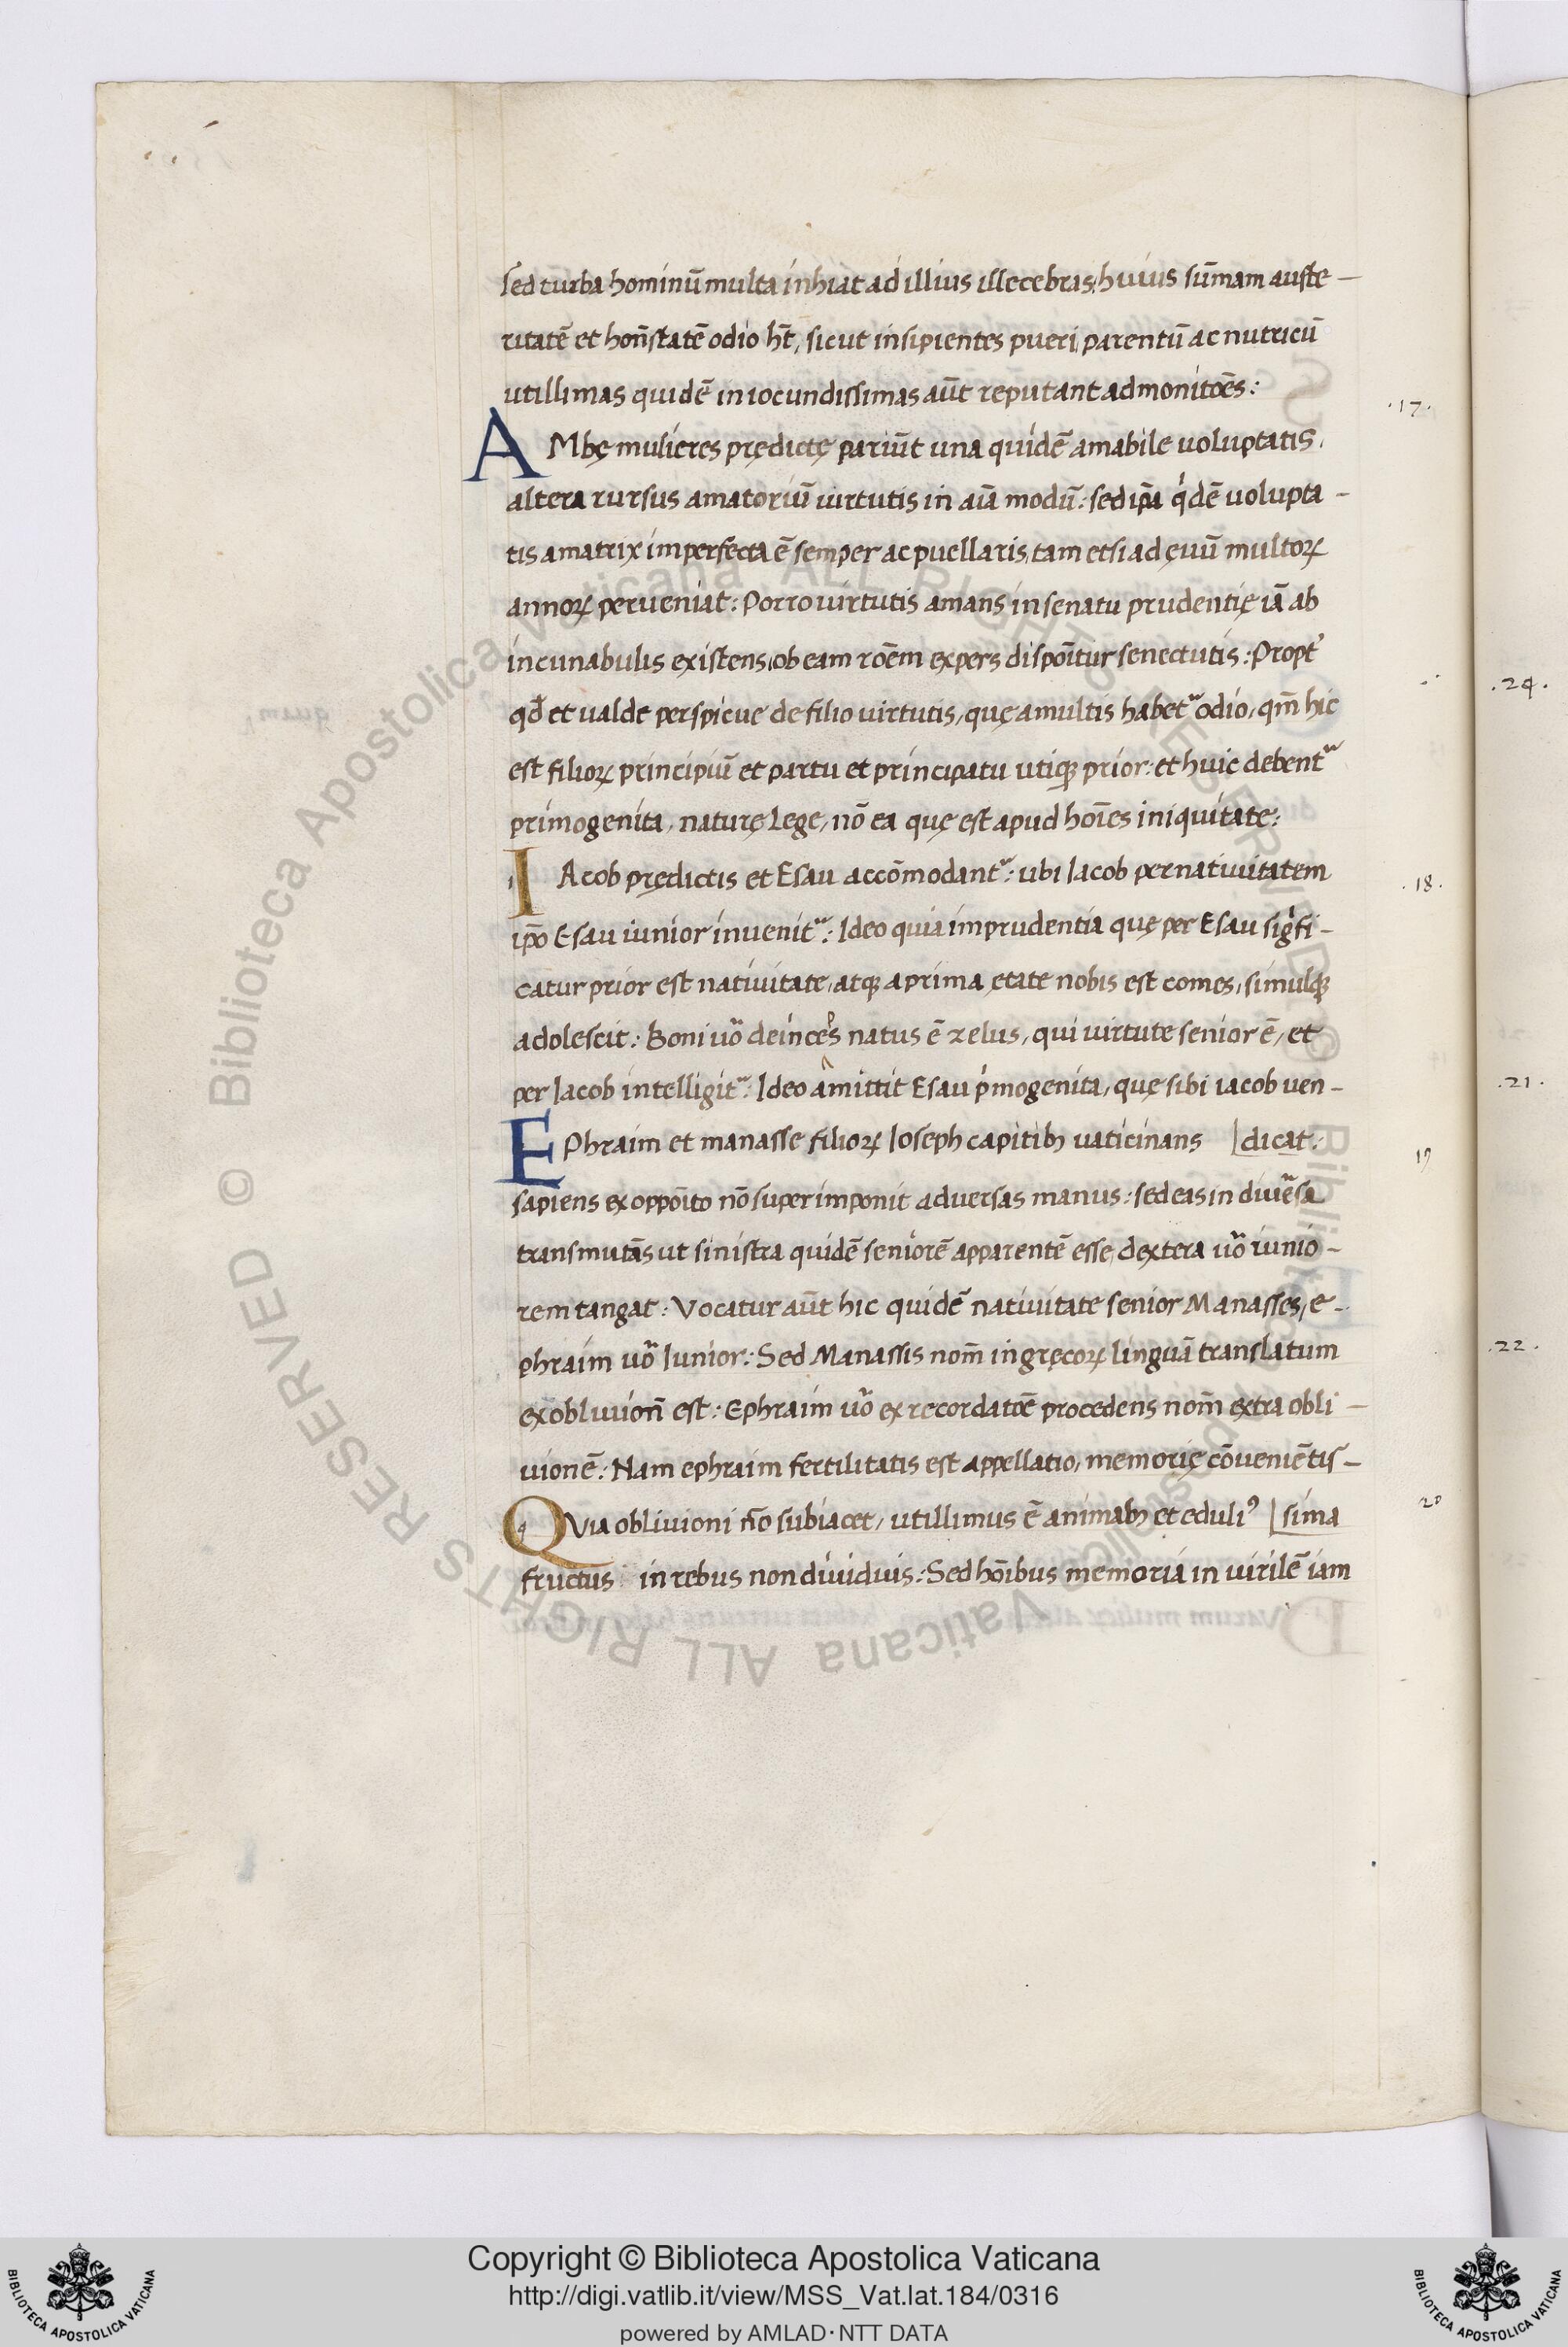 sed turba hominū multa inhiat ad illius illecebras, huius sūmam auste-
ritatē et hoñstatē odio hñt, sicut insipientes pueri, parentū ac nutricū
utillimas quidē iniocundissimas aūt reputant admonitōēs:
AMbę mulieres prędictę pariūt una quidē amabile uoluptatis, .17.
altera rursus amatoriū uirtutis in aīā modū: sed ip̄a qͥdē uolupta-
tis amatrix imperfecta ē semper ac puellaris, tam etsi ad ęuū multoꝝ
annoꝝ perueniat: Porro uirtutis amans in senatu prudentię iā ab
incunabulis existens, ob eam rōēm expers dispōītur senectutis: Propt̉
qđ et ualde perspicue de filio uirtutis, quę a multis habetᷣ odio, qm̄ hic
est filioꝝ principiū et partu et principatu utiqꝫ prior: et huic debentᷣ
primogenita, naturę lege, nō ea quę est apud hoīēs iniquitate:
IAcob prędictis et Esau accōmodantᷣ: ubi Iacob per natiuitatem .18.
ip̄o Esau iunior inuenitᷣ: Ideo quia imprudentia quę per Esau sigͥfi-
catur prior est natiuitate, atqꝫ a prima ętate nobis est comes, simulqꝫ
adolescit: Boni uō deinceps natus ē zelus, qui uirtute senior ē, et
per Iacob intelligitᷣ: Ideo amittit Esau pͥmogenita, quę sibi iacob uen-
EPhraim et manasse filioꝝ Ioseph capitibꝫ uaticinans [dicat: 19
sapiens ex oppōīto nō superimponit aduersas manus: sed eas in diuersa
transmutās ut sinistra quidē seniorē apparentē esse, dextera uō iunio-
rem tangat: Vocatur aūt hic quidē natiuitate senior Manasses, e-
phraim uō Iunior: Sed Manassis nom̄ in gręcoꝝ linguā translatum
ex obliuioñ est: Ephraim uō ex recordatōē procedens nom̄ extra obli-
uionē: Nam ephraim fertilitatis est appellatio, memorię cōueniētis-
QVia obliuioni nō subiacet, utillimus ē animabꝫ et eduliꝰ [sima 20
fructus in rebus non diuiduis: Sed hoībus memoria in uirilē iam
.24.
.21.
.22.
Copyright © Biblioteca Apostolica Vaticana
http://digi.vatlib.it/view/MSS_Vat.lat.184/0316
powered by AMLAD·NTT DATA
BIBLIOTECA APOSTOLICA VATICANA
BIBLIOTECA APOSTOLICA VATICANA
© Biblioteca Apostolica Vaticana ALL RIGHTS RESERVED © Biblioteca Apostolica Vaticana ALL RIGHTS RESERVED